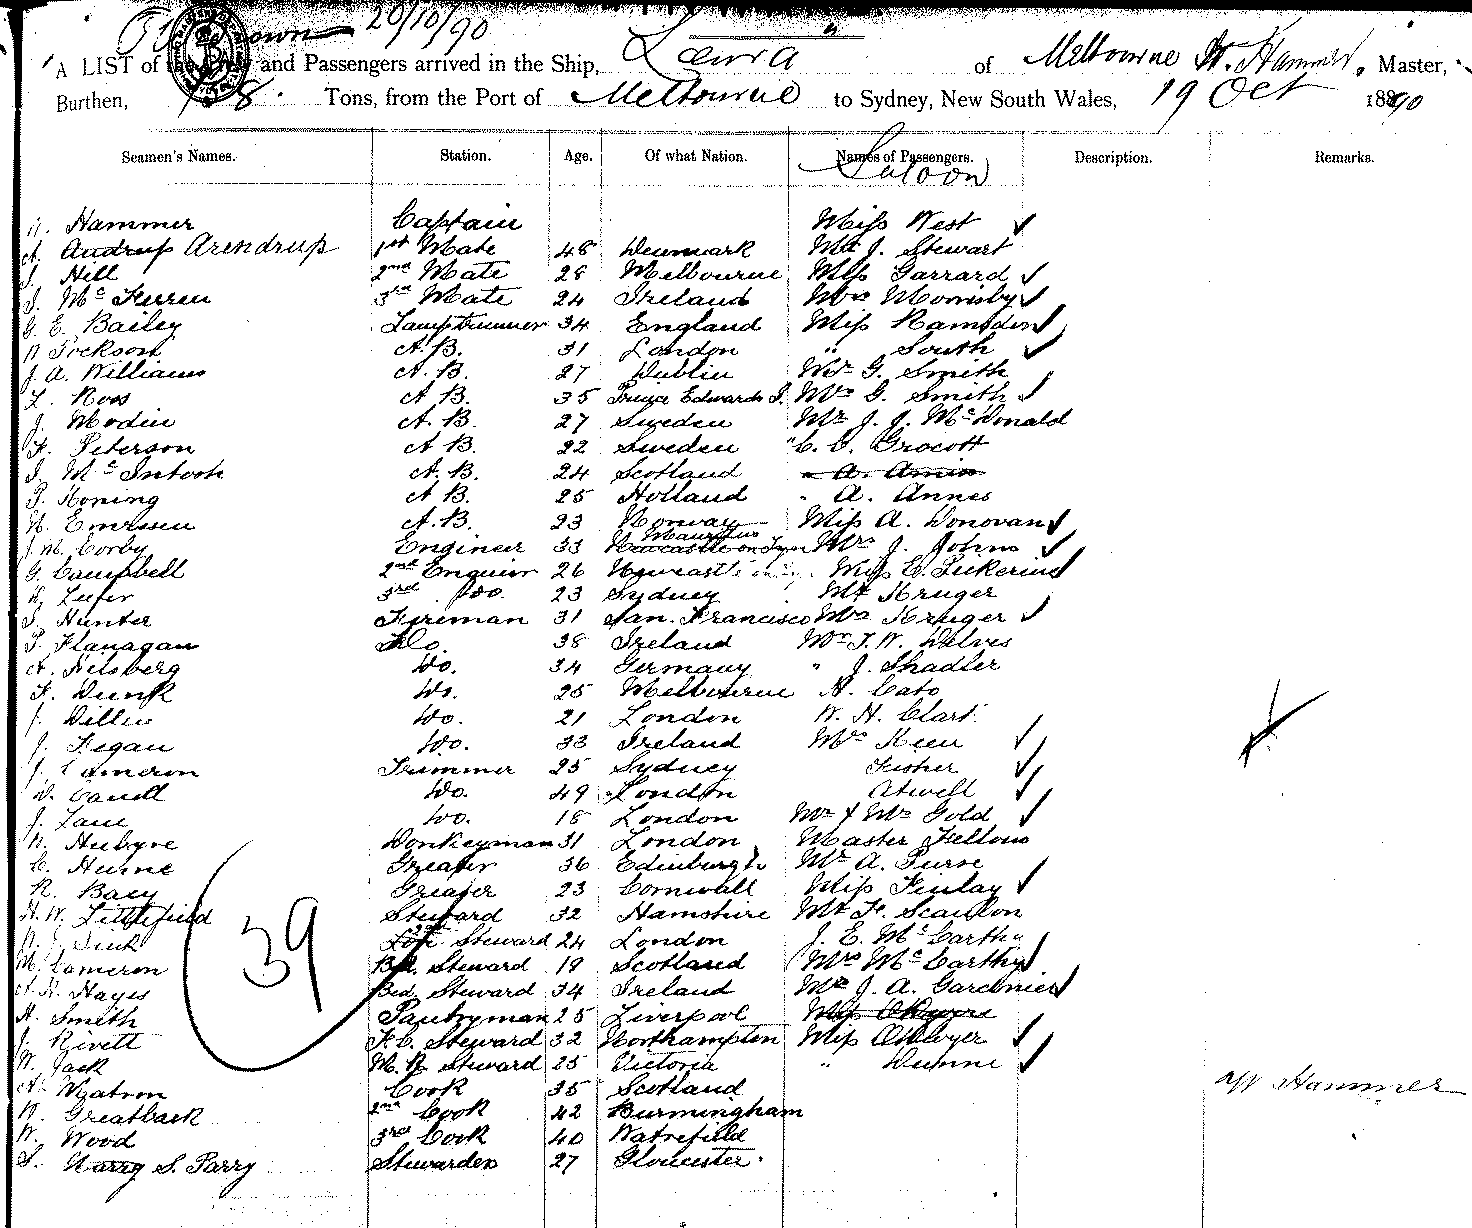 20/10/90
A LIST of the Crew and Passengers arrived in the Ship, of Melbourne W. Hammer, Master,
Burthen, Tons, from the Port of Melbourne to Sydney, New South Wales, 19 Oct 1890
Seamen's Names. Station. Age. Of what Nation. Names of Passengers. Description. Remarks.
Saloon
Hammer Captain Miss West
A. Andrup Arendrup 1st Mate 48 Denmark Mr J. Stewart
Hill 2nd Mate 28 Melbourne Miss Garrard
3rd Mate 24 Ireland Mrs Hornisby
G. E. Bailey Lamptrimmer 34 England Miss Ramsden
A.B. 31 London " South
J. A. Williams A.B. 27 Dublin Mr G. Smith
Ross A B. 35 Prince Edwards I. Mrs G. Smith
J. Modin A.B. 27 Sweden Mr J. J. McDonald
F. Peterson A B. 22 Sweden " C. C. Grocott
McIntosh A.B. 24 Scotland
Honing A B. 25 Holland " A. Annes
A.B. 23 Norway Miss A. Donovan
J. M. Corby Engineer 33 Newcastle on Tyne Mauritius Mrs J. Johns
G. Campbell 2nd Engineer 26 Newcastle Miss E. Pickering
3rd Do. 23 Sydney Mr Kruger
Hunter Fireman 31 San. Francisco Mrs Kruger
Flanagan Do. 38 Ireland Mr T. W. Delves
Do. 34 Germany " J. Shadler
F. Dunk Do. 25 Melbourne H. Cato
J. Dillon Do. 21 London W. H. Clark
J. Fegan Do. 33 Ireland Mrs Keen
J. Cameron Trimmer 25 Sydney Fisher
Do. 49 London Atwell
J. Lane Do. 18 London Mr & Mrs Gold
Donkeyman 31 London Master Fellows
Greaser 36 Edinburgh Mr A. Purse
R. Greaser 23 Cornwall Miss Finlay
H. W. Littlefield Steward 32 Hamshire Mr F. Scanlon
Steward 24 London J. E. McCarthy
M. Cameron Bed. Steward 19 Scotland Mrs McCarthy
Hayes Bed. Steward 34 Ireland Mr J. A. Gardinier
39
H. Smith Pantryman 25 Liverpool Miss
J. Rivett F.C. Steward 32 Northampton Miss
W. Jack M. R. Steward 25 Victoria " Dunne
A. Watson Cook 35 Scotland
W Hammer
W. Greatback 2nd Cook 42 Burmingham
W. Wood 3rd Cook 40 Watrefield
S. Harry S. Parry Stewardess 27 Gloucester.